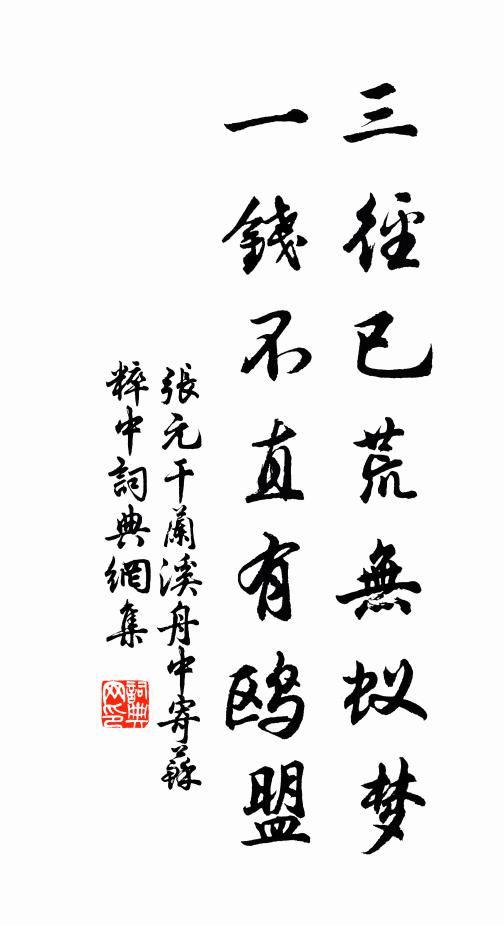 三徑已荒無蚁梦
一錢不直有鸥盟
張元干蘭溪舟中寄蘇
粹中詞典網集
詞典網印